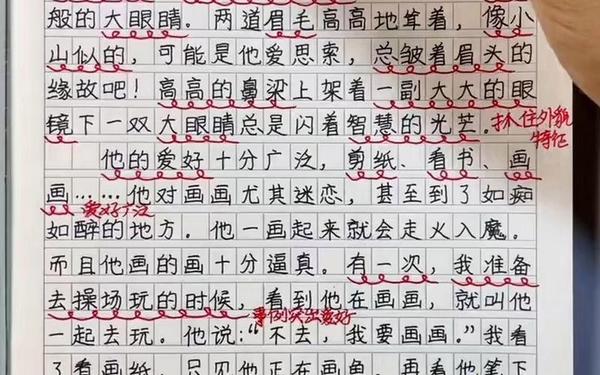 般的大眼睛。两道眉毛高高地耸着，像小
山似的，可能是他爱思索，总皱着眉头的
缘故吧！高高的鼻梁上架着一副大大的眼
镜下一双大眼睛总是闪着智慧的光芒。
抓住外貌
特征
他的爱好十分广泛，剪纸、看书、画
画……他对画画尤其迷恋，甚至到了如痴
爱好广泛
如醉的地方。他一画起来就会走火入魔。
而且他画的画十分逼真。有一次，我准备
去操场玩的时候，看到他在画画，就叫他
事例突出爱好
一起去玩。他说：“不去，我要画画。”我看
了看画纸，只见他正在画鱼，再看他笔下